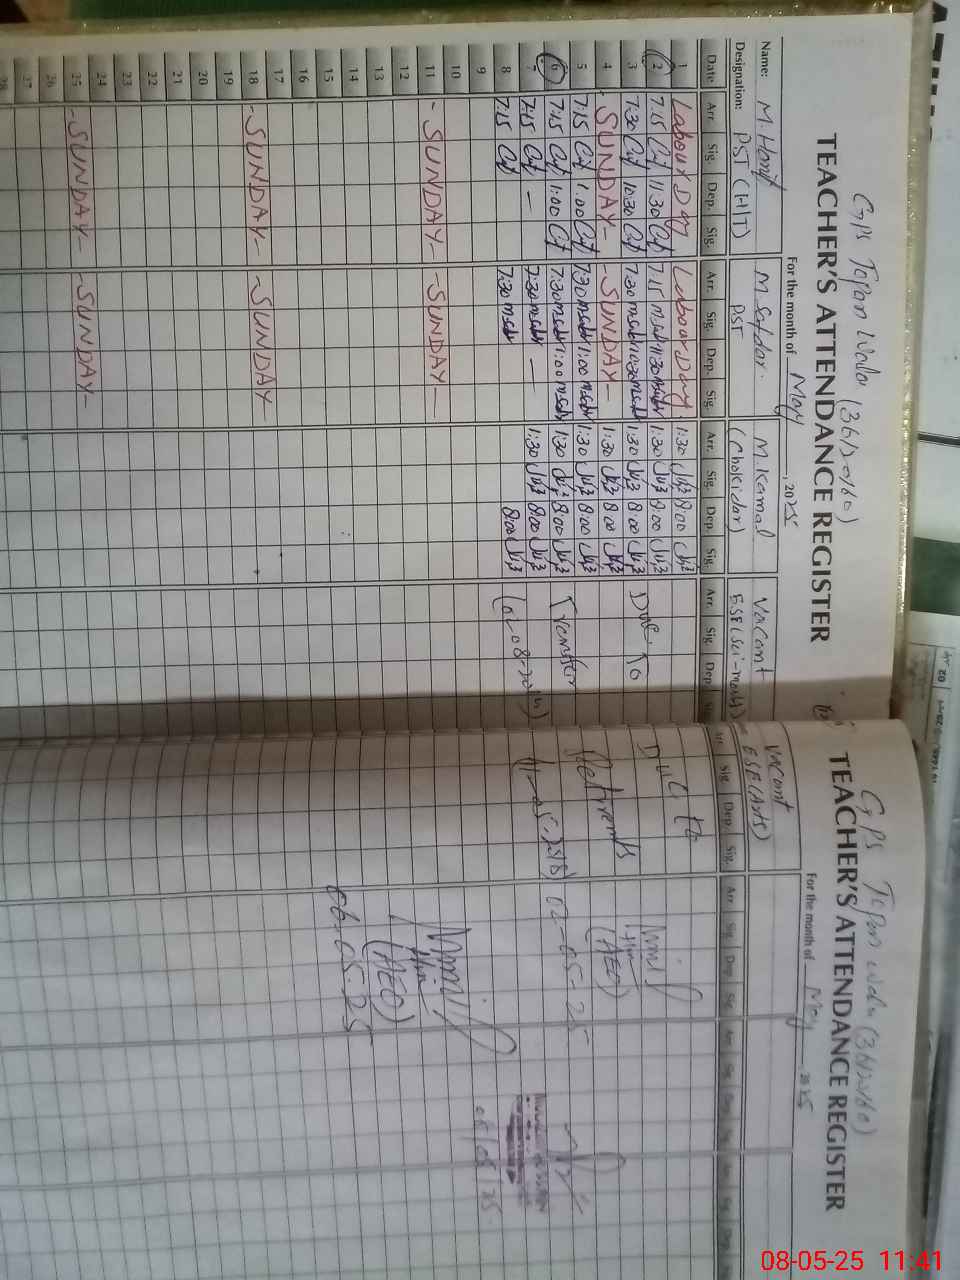 GPS Topan Wala (36120160)
TEACHER'S ATTENDANCE REGISTER
For the month of May, 2025
Name: M. Hanif M. Safdar. M. Kamal Vacant
Designation: PST (H/T) PST (Chokidar) ESE (Sci-math)
Date Arr. Sig. Dep. Sig. Arr. Sig. Dep. Sig. Arr. Sig. Dep. Sig. Arr. Sig. Dep. Sig.
1 Labour Day Labour Day 1:30 8:00
2 7:15 11:30 7:15 11:30 1:30 8:00
3 7:30 10:30 7:30 10:30 1:30 8:00 Due to
4 -SUNDAY- -SUNDAY- 1:30 8:00
5 7:15 1:00 7:30 1:00 1:30 8:00
6 7:15 1:00 7:30 1:00 1:30 8:00 Transfer
7 7:15 — 7:30 — 1:30 8:00
8 7:15 7:30 8:00
9
10
11 -SUNDAY- -SUNDAY-
12
13
14
15
16
17
18 -SUNDAY- -SUNDAY-
19
20
21
22
23
24
25 -SUNDAY- -SUNDAY-
26
27
28
GPS Topan Wala (36120160)
TEACHER'S ATTENDANCE REGISTER
For the month of May, 2025
Vacant
ESE (Arts)
Arr. Sig. Dep. Sig. Arr. Sig. Dep. Sig. Arr. Sig. Dep. Sig. Arr. Sig. Dep.
Due to
(AEO)
02-05-25
(AEO)
06-05-25
08-05-25 11:41